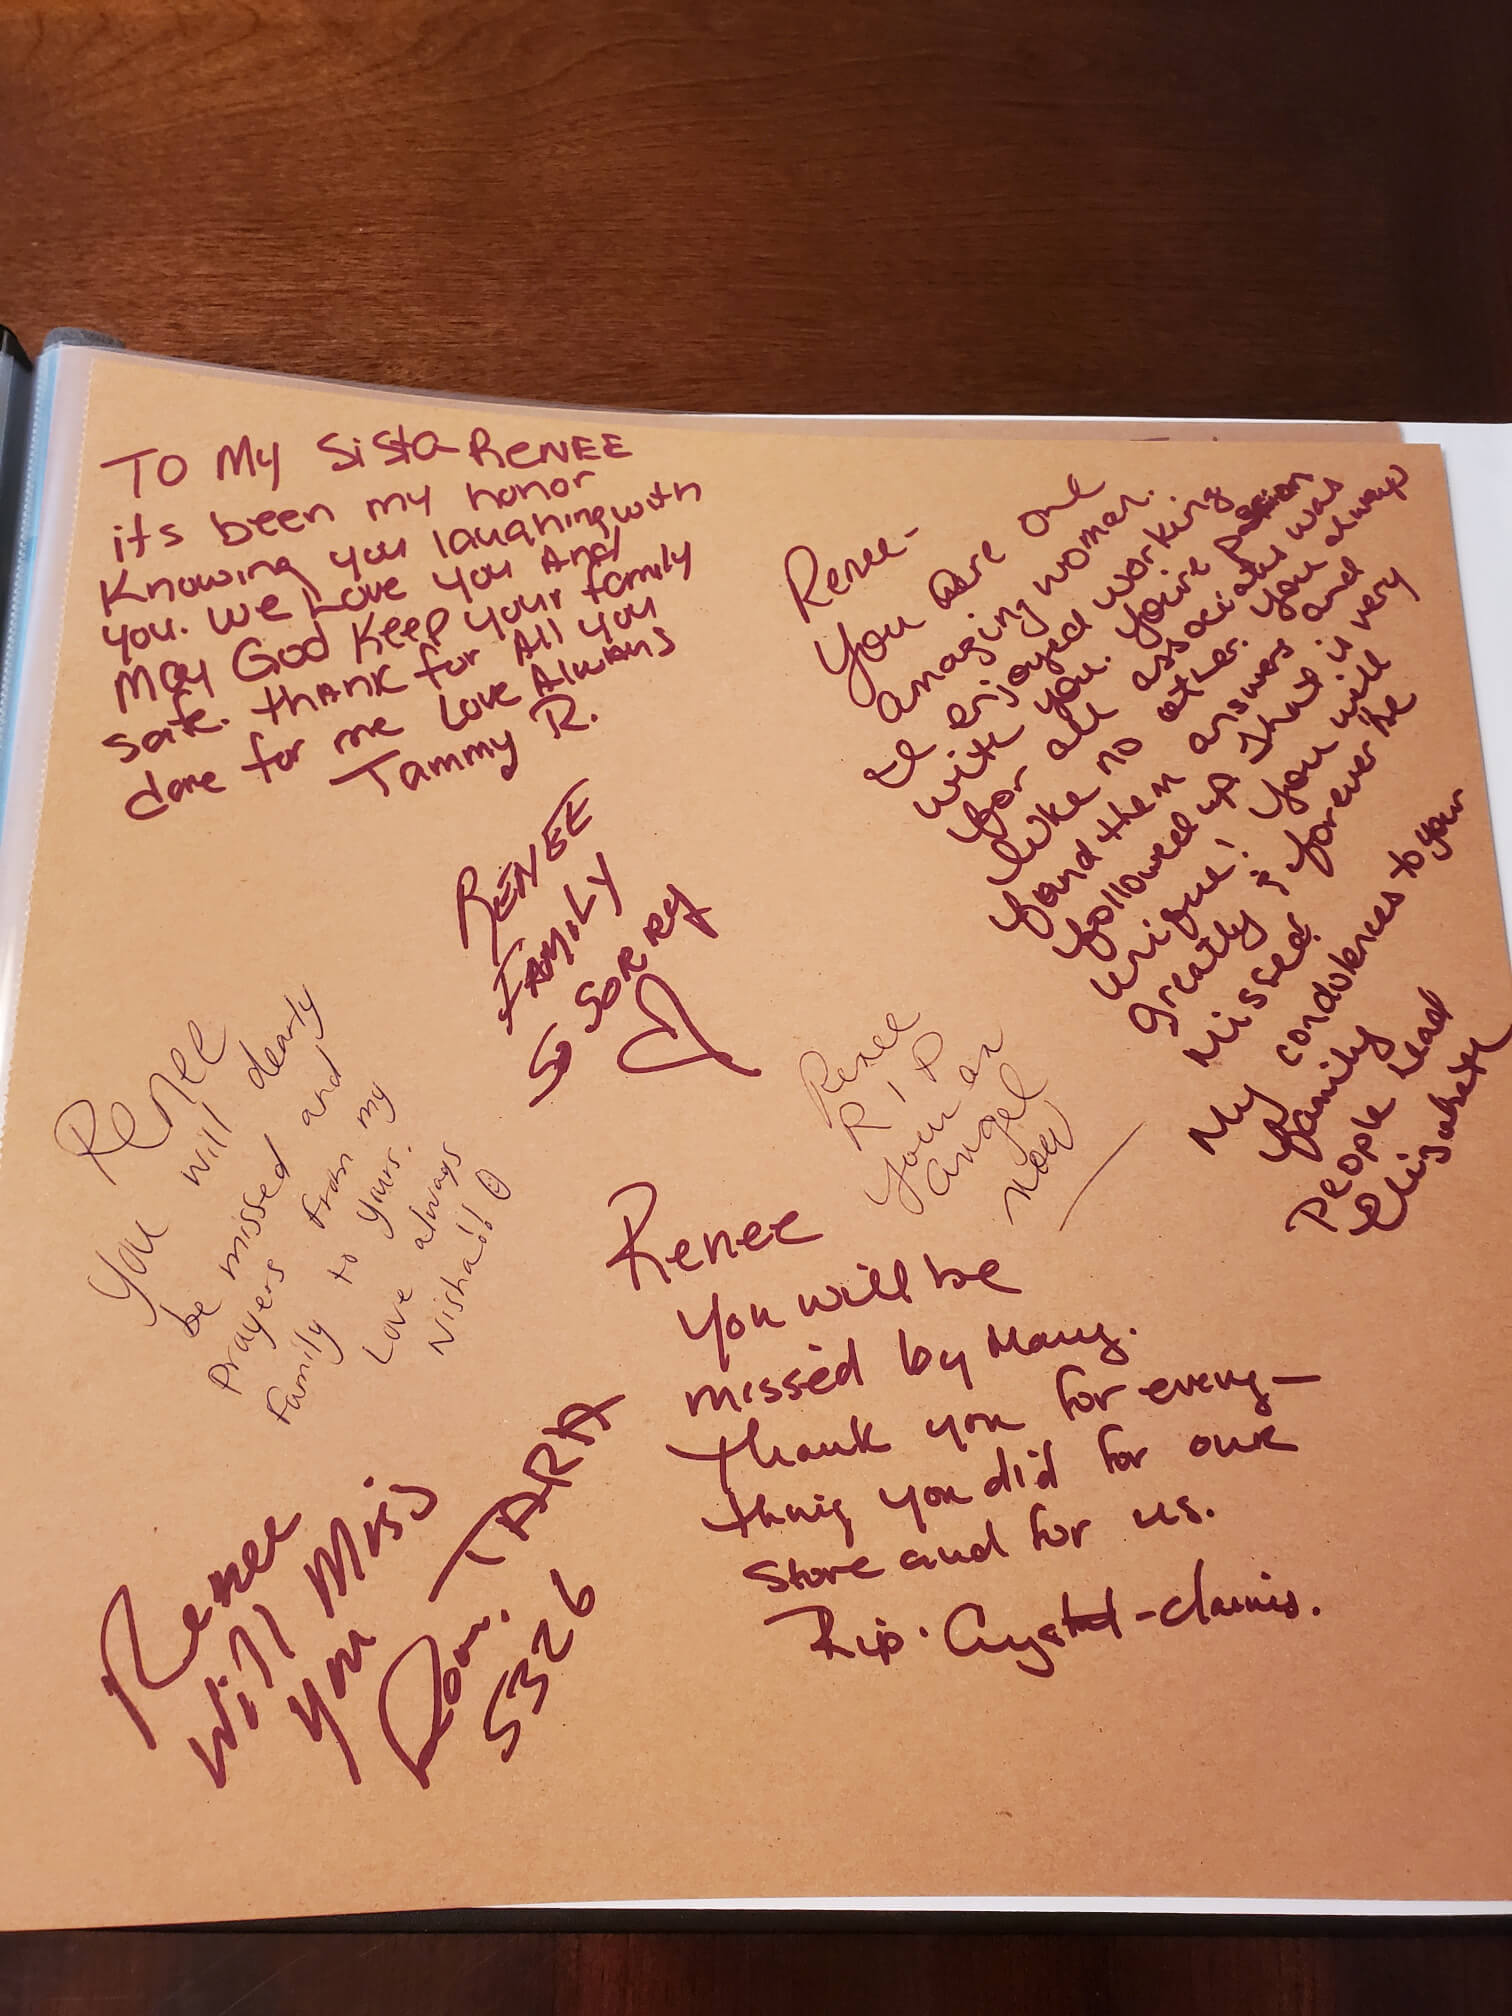 To My Sista RENEE
its been my honor
Knowing you laughing with
you. We Love you And
May God Keep your family
safe. thANK for All you
done for me Love Always
Tammy R.
Renee-
You are one
amazing woman.
enjoyed working
with you. Youre passion
for all associates was
like no other. You always
found them answers and
followed up that is very
unique! You will
greatly & forever be
Missed.
My condolences to your
family
People Lead
Elizabeth
RENEE
FAMILY
SO SORRY
Renee
You will dearly
be missed and
Prayers from my
Family to yours.
Love always
Nisha!!
Renee
R I P
Your an
angel
now
Renee
You will be
missed by Many.
Thank you for every-
thing you did for our
Store and for us.
Rip. Crystal - claims.
Renee
Will Miss
you
Dom. TARA
5326